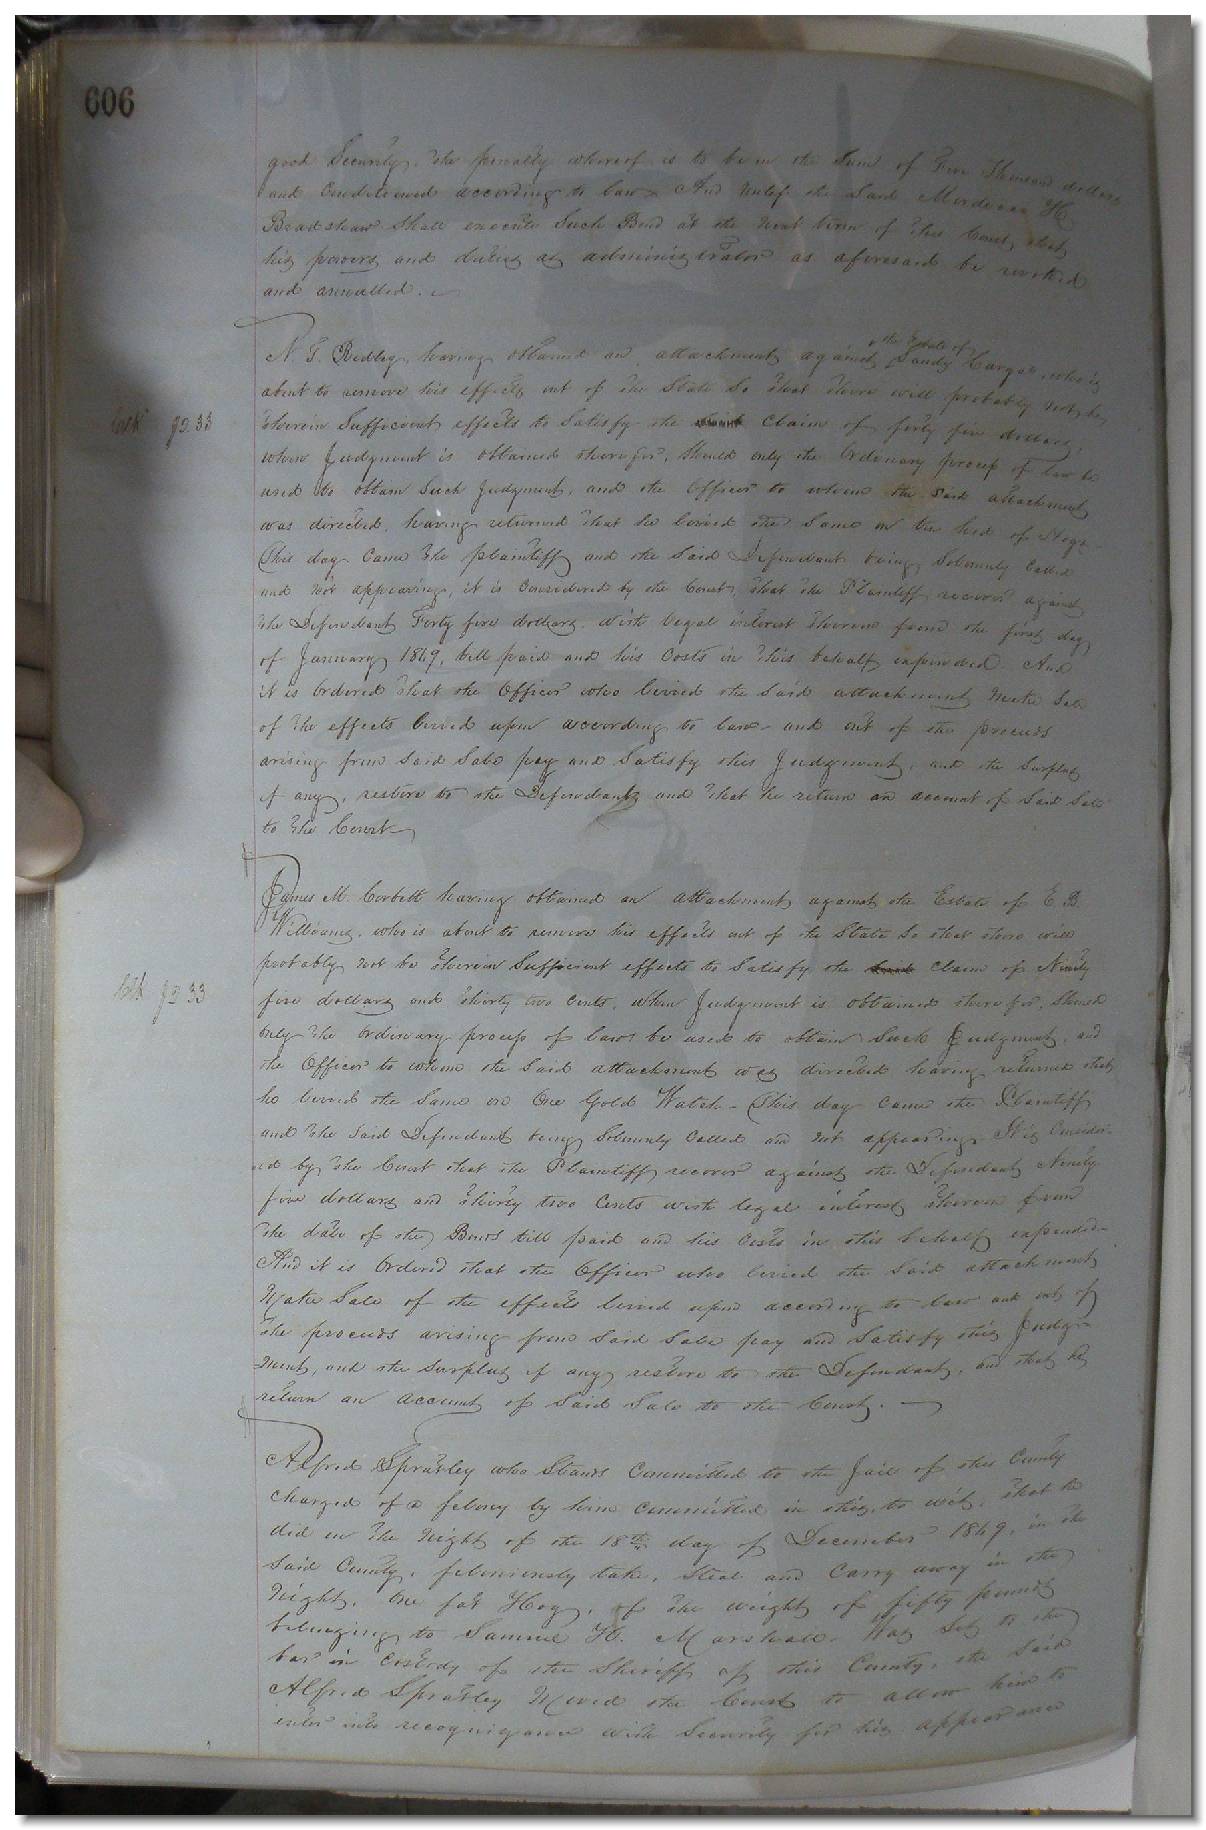 606
good Security, the penalty whereof is to be in the Sum of Five Thousand dollars
and conditioned according to law. And unless the Said Mordecai H
Bradshaw Shall execute Such Bond at the next term of this Court, that
his powers and duties as administrator as aforesaid be revoked
and annulled.
the Estate of
N. T. Ridley, having obtained an attachment against Sandy, who is
about to remove his effects out of the State So that there will probably not be
therein Sufficient effects to Satisfy the claim of forty five dollars,
when Judgment is obtained therefor, Should only the Ordinary process of law be
used to obtain Such Judgment, and the Officer to whom the said attachment
was directed, having returned that he levied the Same on two head of Hogs
This day came the plaintiff and the Said Defendant being Solemnly Called
and not appearing, it is Considered by the Court, that the Plaintiff recover against
the Defendant Forty five dollars, with legal interest thereon from the first day
of January 1849, till paid and his Costs in this behalf expended. And
it is Ordered that the Officer who levied the Said attachment Make Sale
of the effects levied upon according to law and out of the proceeds
arising from Said Sale pay and Satisfy this Judgment, and the Surplus
if any, restore to the Defendant and that he return an account of Said Sale
to the Court
James M. Corbett having obtained an attachment against the Estate of E. B.
Williams, who is about to remove his effects out of the State So that there will
probably not be therein Sufficient effects to Satisfy the Claim of Ninety
five dollars and thirty two cents, when Judgment is obtained therefor, Should
only the Ordinary process of law be used to obtain Such Judgment, and
the Officer to whom the Said attachment was directed having returned that
he levied the Same on One Gold Watch - This day came the Plaintiff
and the Said Defendant being Solemnly Called and not appearing It is Consider-
ed by the Court that the Plaintiff recover against the Defendant Ninety
five dollars and thirty two Cents with legal interest thereon from
the date of the Bond till paid and his Costs in this behalf expended
And it is Ordered that the Officer who levied the Said attachment
Make Sale of the effects levied upon according to law and out of
the proceeds arising from Said Sale pay and Satisfy this Judg-
ment, and the Surplus if any restore to the Defendant, and that he
return an account of Said Sale to the Court.
Alfred Spratley who Stands Committed to the Jail of this County
charged of a felony by him committed in this, to wit, that he
did in the Night of the 18th day of December 1849, in the
Said County, feloniously take, Steal and Carry away in the
Night, One fat Hog, of the weight of fifty pounds
belonging to Samuel H. Marshall. Was Set to the
bar in custody of the Sheriff of this County, the Said
Alfred Spratley Moved the Court to allow him to
enter into recognizance with Security for his appearance